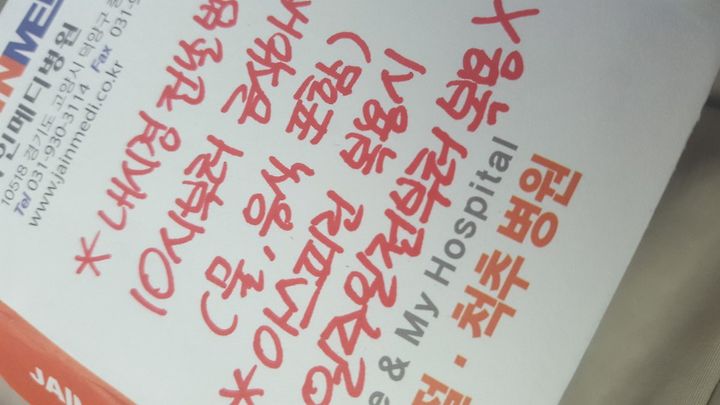 INMEDI
인메디병원
10518 경기도 고양시 덕양구
Tel 031-930-3114 Fax 031-9
www.jainmedi.co.kr
*내시경
10시부터 금식
(물,
*아스피린 복용시
전부터 복용X
e & My Hospital
절·척추병원
JAI